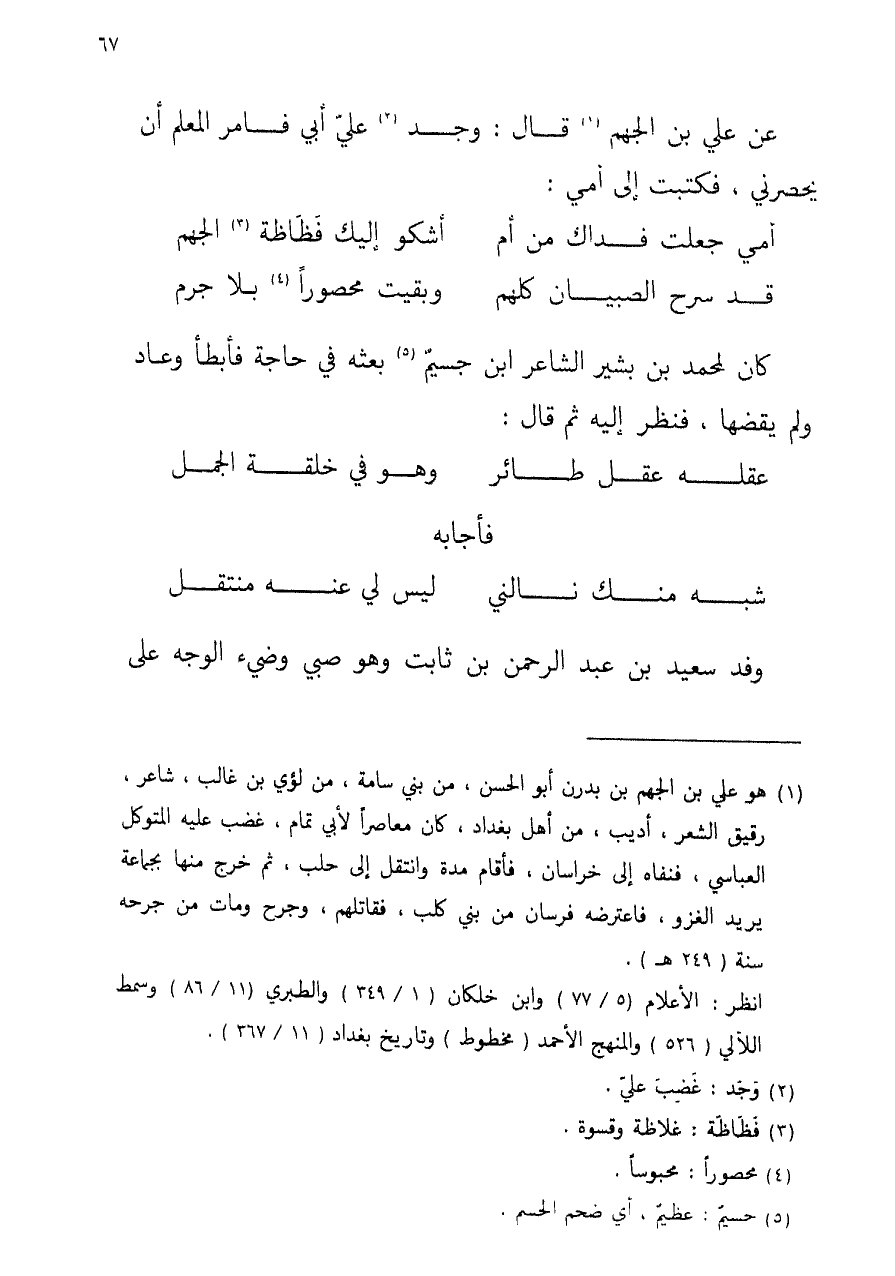 ٦٧
عن علي بن الجهم (١) قـــال : وجـــد (٢) عليّ أبي فـــامر المعلم أن
يحصرني ، فكتبت إلى أمي :
أمي جعلت فـــداك من أم أشكو إليك فَظَاظة (٣) الجهم
قـــد سرح الصبيـــان كلهم وبقيت محصوراً (٤) بـلا جرم
كان لمحمد بن بشير الشاعر ابن جسيمٌ (٥) بعثه في حاجة فأبطأ وعـاد
ولم يقضها ، فنظر إليه ثم قال :
عقلـــه عقـــل طـــائر وهـــو في خلقـــة الجمـــل
فأجابه
شبـــه منـــك نـــالني ليس لي عنـــه منتقـــل
وفد سعيد بن عبد الرحمن بن ثابت وهو صبي وضيء الوجه على
(١) هو علي بن الجهم بن بدرن أبو الحسن ، من بني سامة ، من لؤي بن غالب ، شاعر ،
رقيق الشعر ، أديب ، من أهل بغداد ، كان معاصراً لأبي تمام ، غضب عليه المتوكل
العباسي ، فنفاه إلى خراسان ، فأقام مدة وانتقل إلى حلب ، ثم خرج منها بجماعة
يريد الغزو ، فاعترضه فرسان من بني كلب ، فقاتلهم ، وجرح ومات من جرحه
سنة ( ٢٤٩ هـ ) .
انظر : الأعلام (٥ / ٧٧ ) وابن خلكان ( ١ / ٣٤٩ ) والطبري (١١ / ٨٦ ) وسمط
اللآلي ( ٥٢٦ ) والمنهج الأحمد ( مخطوط ) وتاريخ بغداد ( ١١ / ٣٦٧ ) .
(٢) وَجَد : غَضِبَ عليّ .
(٣) فَظَاظَة : غلاظة وقسوة .
(٤) محصوراً : محبوساً .
(٥) جسيمٌ : عظيمٌ ، أي ضخم الجسم .